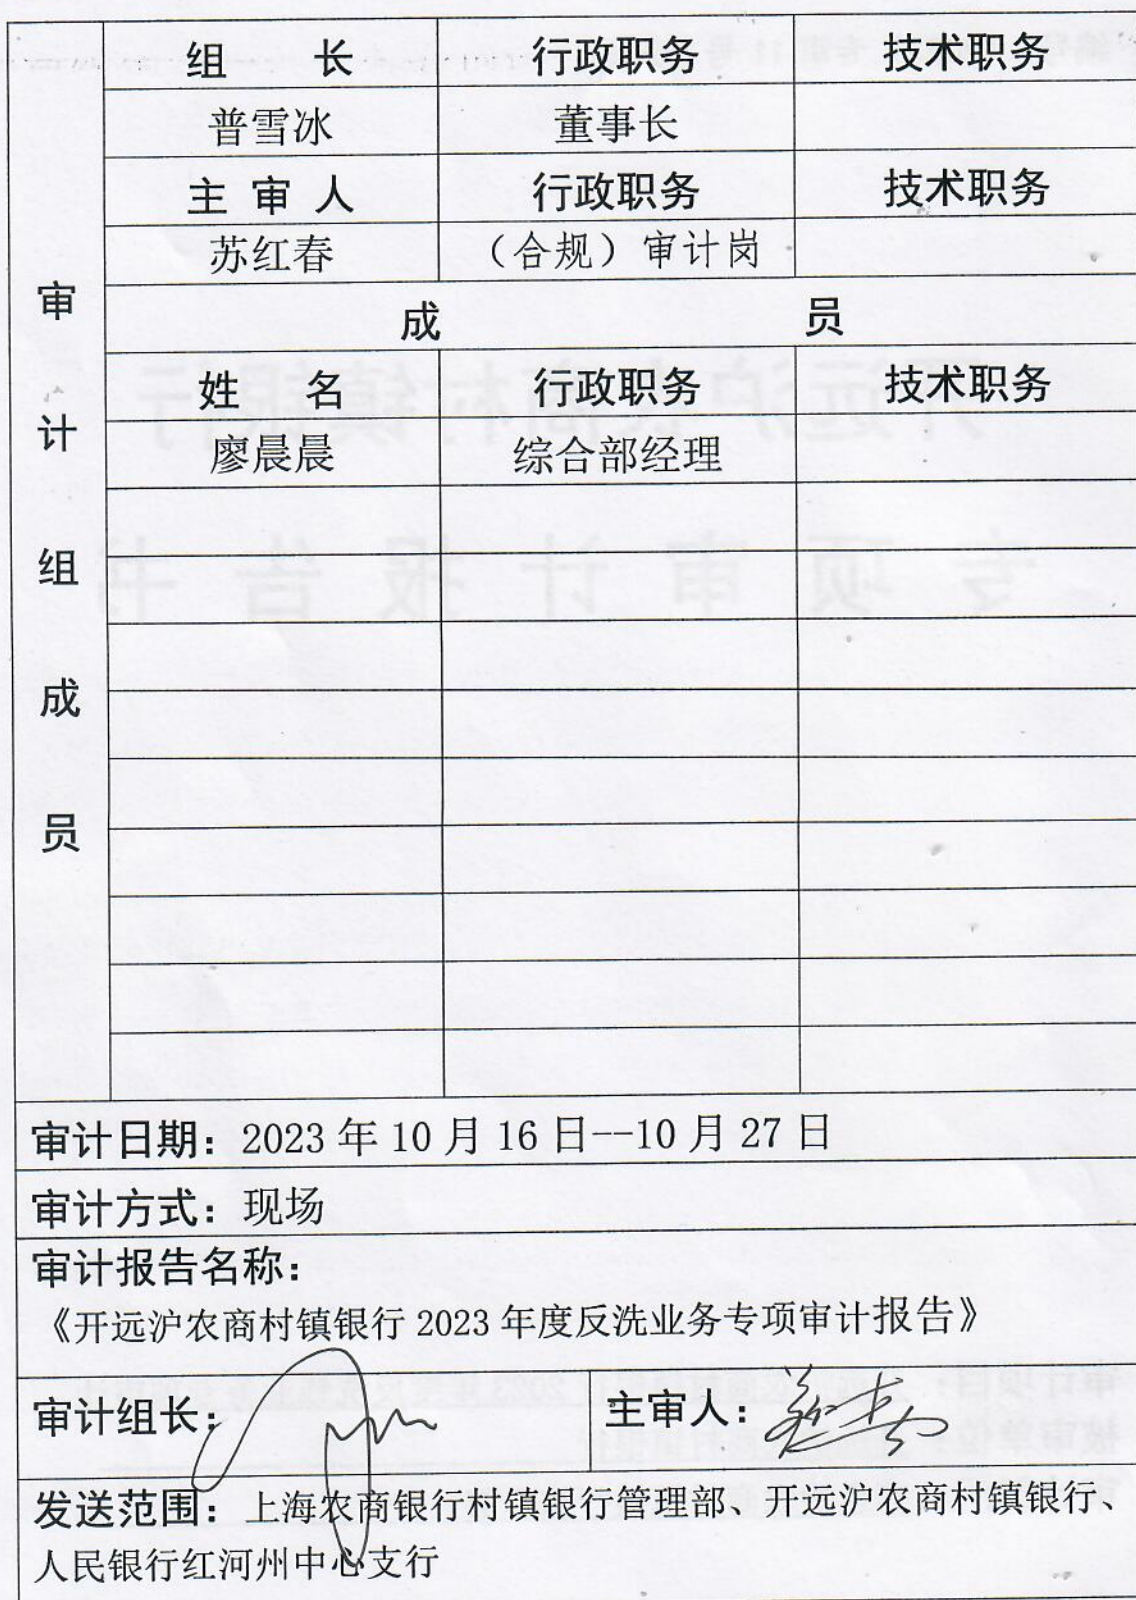 审计组成员
组 长 行政职务 技术职务
普雪冰 董事长
主 审 人 行政职务 技术职务
苏红春 （合规）审计岗
成 员
姓 名 行政职务 技术职务
廖晨晨 综合部经理
审计日期：2023年10月16日--10月27日
审计方式：现场
审计报告名称：
《开远沪农商村镇银行2023年度反洗业务专项审计报告》
审计组长： 主审人：
发送范围：上海农商银行村镇银行管理部、开远沪农商村镇银行、
人民银行红河州中心支行